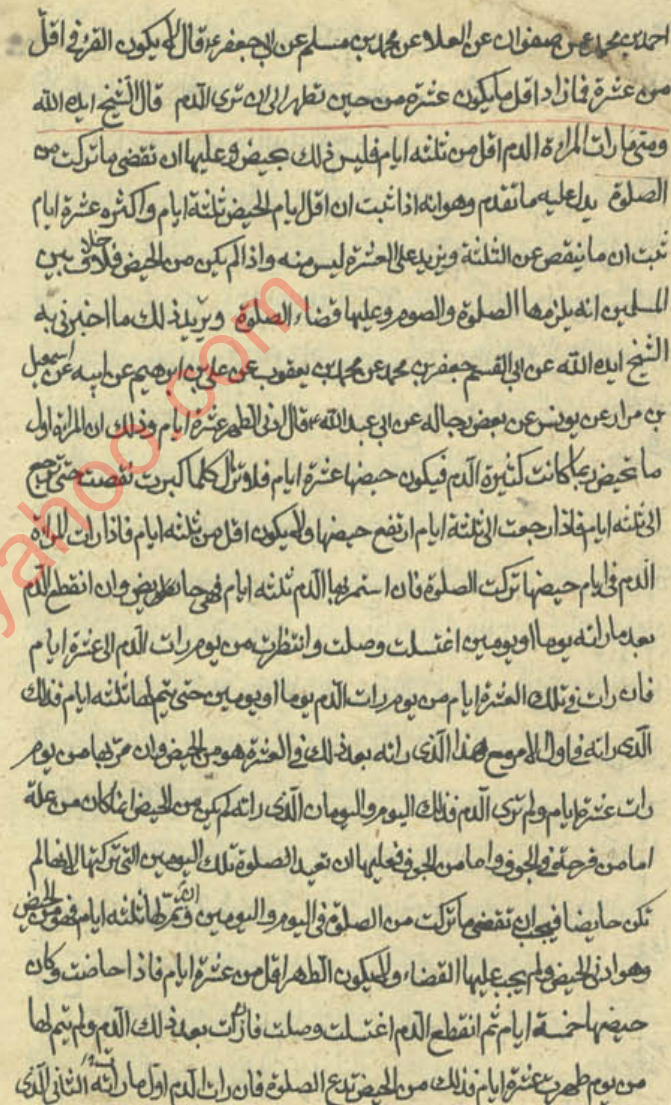 احمد بن محمد عن صفوان عن العلا عن محمد بن مسلم عن ابى جعفر ع قال لا يكون القرء فى اقل
من عشرة فما زاد اقل ما يكون عشرة من حين تطهر الى ان ترى الدم قال الشيخ ايده الله
ومتى ما رات المراة الدم اقل من ثلثة ايام فليس ذلك بحيض وعليها ان تقضى ما تركت من
الصلوة يدل عليه ما تقدم وهو انه اذا ثبت ان اقل ايام الحيض ثلثة ايام واكثره عشرة ايام
ثبت ان ما ينقص عن الثلثة ويزيد على العشرة ليس منه واذا لم يكن من الحيض فلا خلاف بين
المسلمين انه يلزمها الصلوة والصوم وعليها قضاء الصلوة ويزيد ذلك ما اخبرنى به
الشيخ ايده الله عن ابى القسم جعفر بن محمد عن محمد بن يعقوب عن على بن ابرهيم عن ابيه عن اسمعيل
بن مرار عن يونس عن بعض رجاله عن ابى عبد الله ع قال ادنى الطهر عشرة ايام وذلك ان المراة اول
ما تحيض ربما كانت كثيرة الدم فيكون حيضها عشرة ايام فلا تزال كلما كبرت نقصت حتى ترجع
الى ثلثة ايام فاذا رجعت الى ثلثة ايام ارتفع حيضها ولا يكون اقل من ثلثة ايام فاذا رات المراة
الدم فى ايام حيضها تركت الصلوة فان استمر بها الدم ثلثة ايام فهى حائض وان انقطع الدم
بعد ما راته يوما او يومين اغتسلت وصلت وانتظرت من يوم رات الدم الى عشرة ايام
فان رات فى تلك العشرة ايام من يوم رات الدم يوما او يومين حتى يتم لها ثلثة ايام فذلك
الذى راته فى اول الامر مع هذا الذى راته بعد ذلك فى العشرة هو من الحيض وان مر بها من يوم
رات عشرة ايام ولم ترى الدم فذلك اليوم واليومان الذى راته لم يكن من الحيض انما كان من علة
اما من قرحة فى الجوف واما من الجوف فعليها ان تعيد الصلوة تلك اليومين التى تركتها لانها لم
تكن حايضا فيجب ان تقضى ما تركت من الصلوة فى اليوم و اليومين وان تم لها ثلثة ايام فهو من الحيض
وهو ادنى الحيض ولم يجب عليها القضاء ولا يكون الطهر اقل من عشرة ايام فاذا حاضت وكان
حيضها خمسة ايام ثم انقطع الدم اغتسلت وصلت فان رات بعد ذلك الدم ولم يتم لها
من يوم طهرت عشرة ايام فذلك من الحيض تدع الصلوة فان رات الدم اول ما راته الثانى الذى
yahoo.com